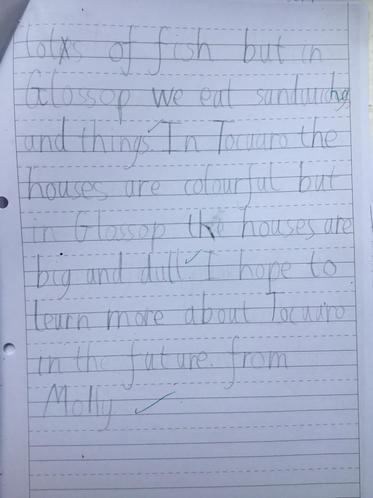 lots of fish but in
Glossop we eat sandwichs
and things. In Tocuaro the
houses are colourful but
in Glossop the houses are
big and dull. I hope to
learn more about Tocuaro
in the future. from
Molly